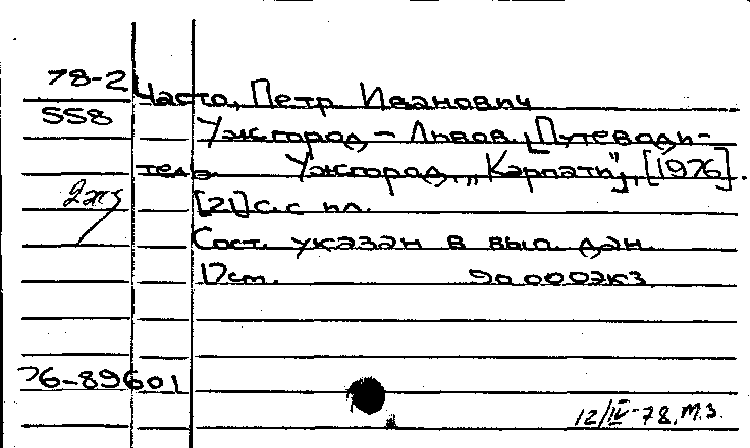 78-2
558
Часто, Петр Иванович
Ужгород - Львов. [Путеводи-
тель. Ужгород, „Карпати", [1976].
2жз
[21] с. с ил.
Сост. указан в вып. дан.
17 см. 90 000 экз.
76-89601
12/IV-78. М.З.